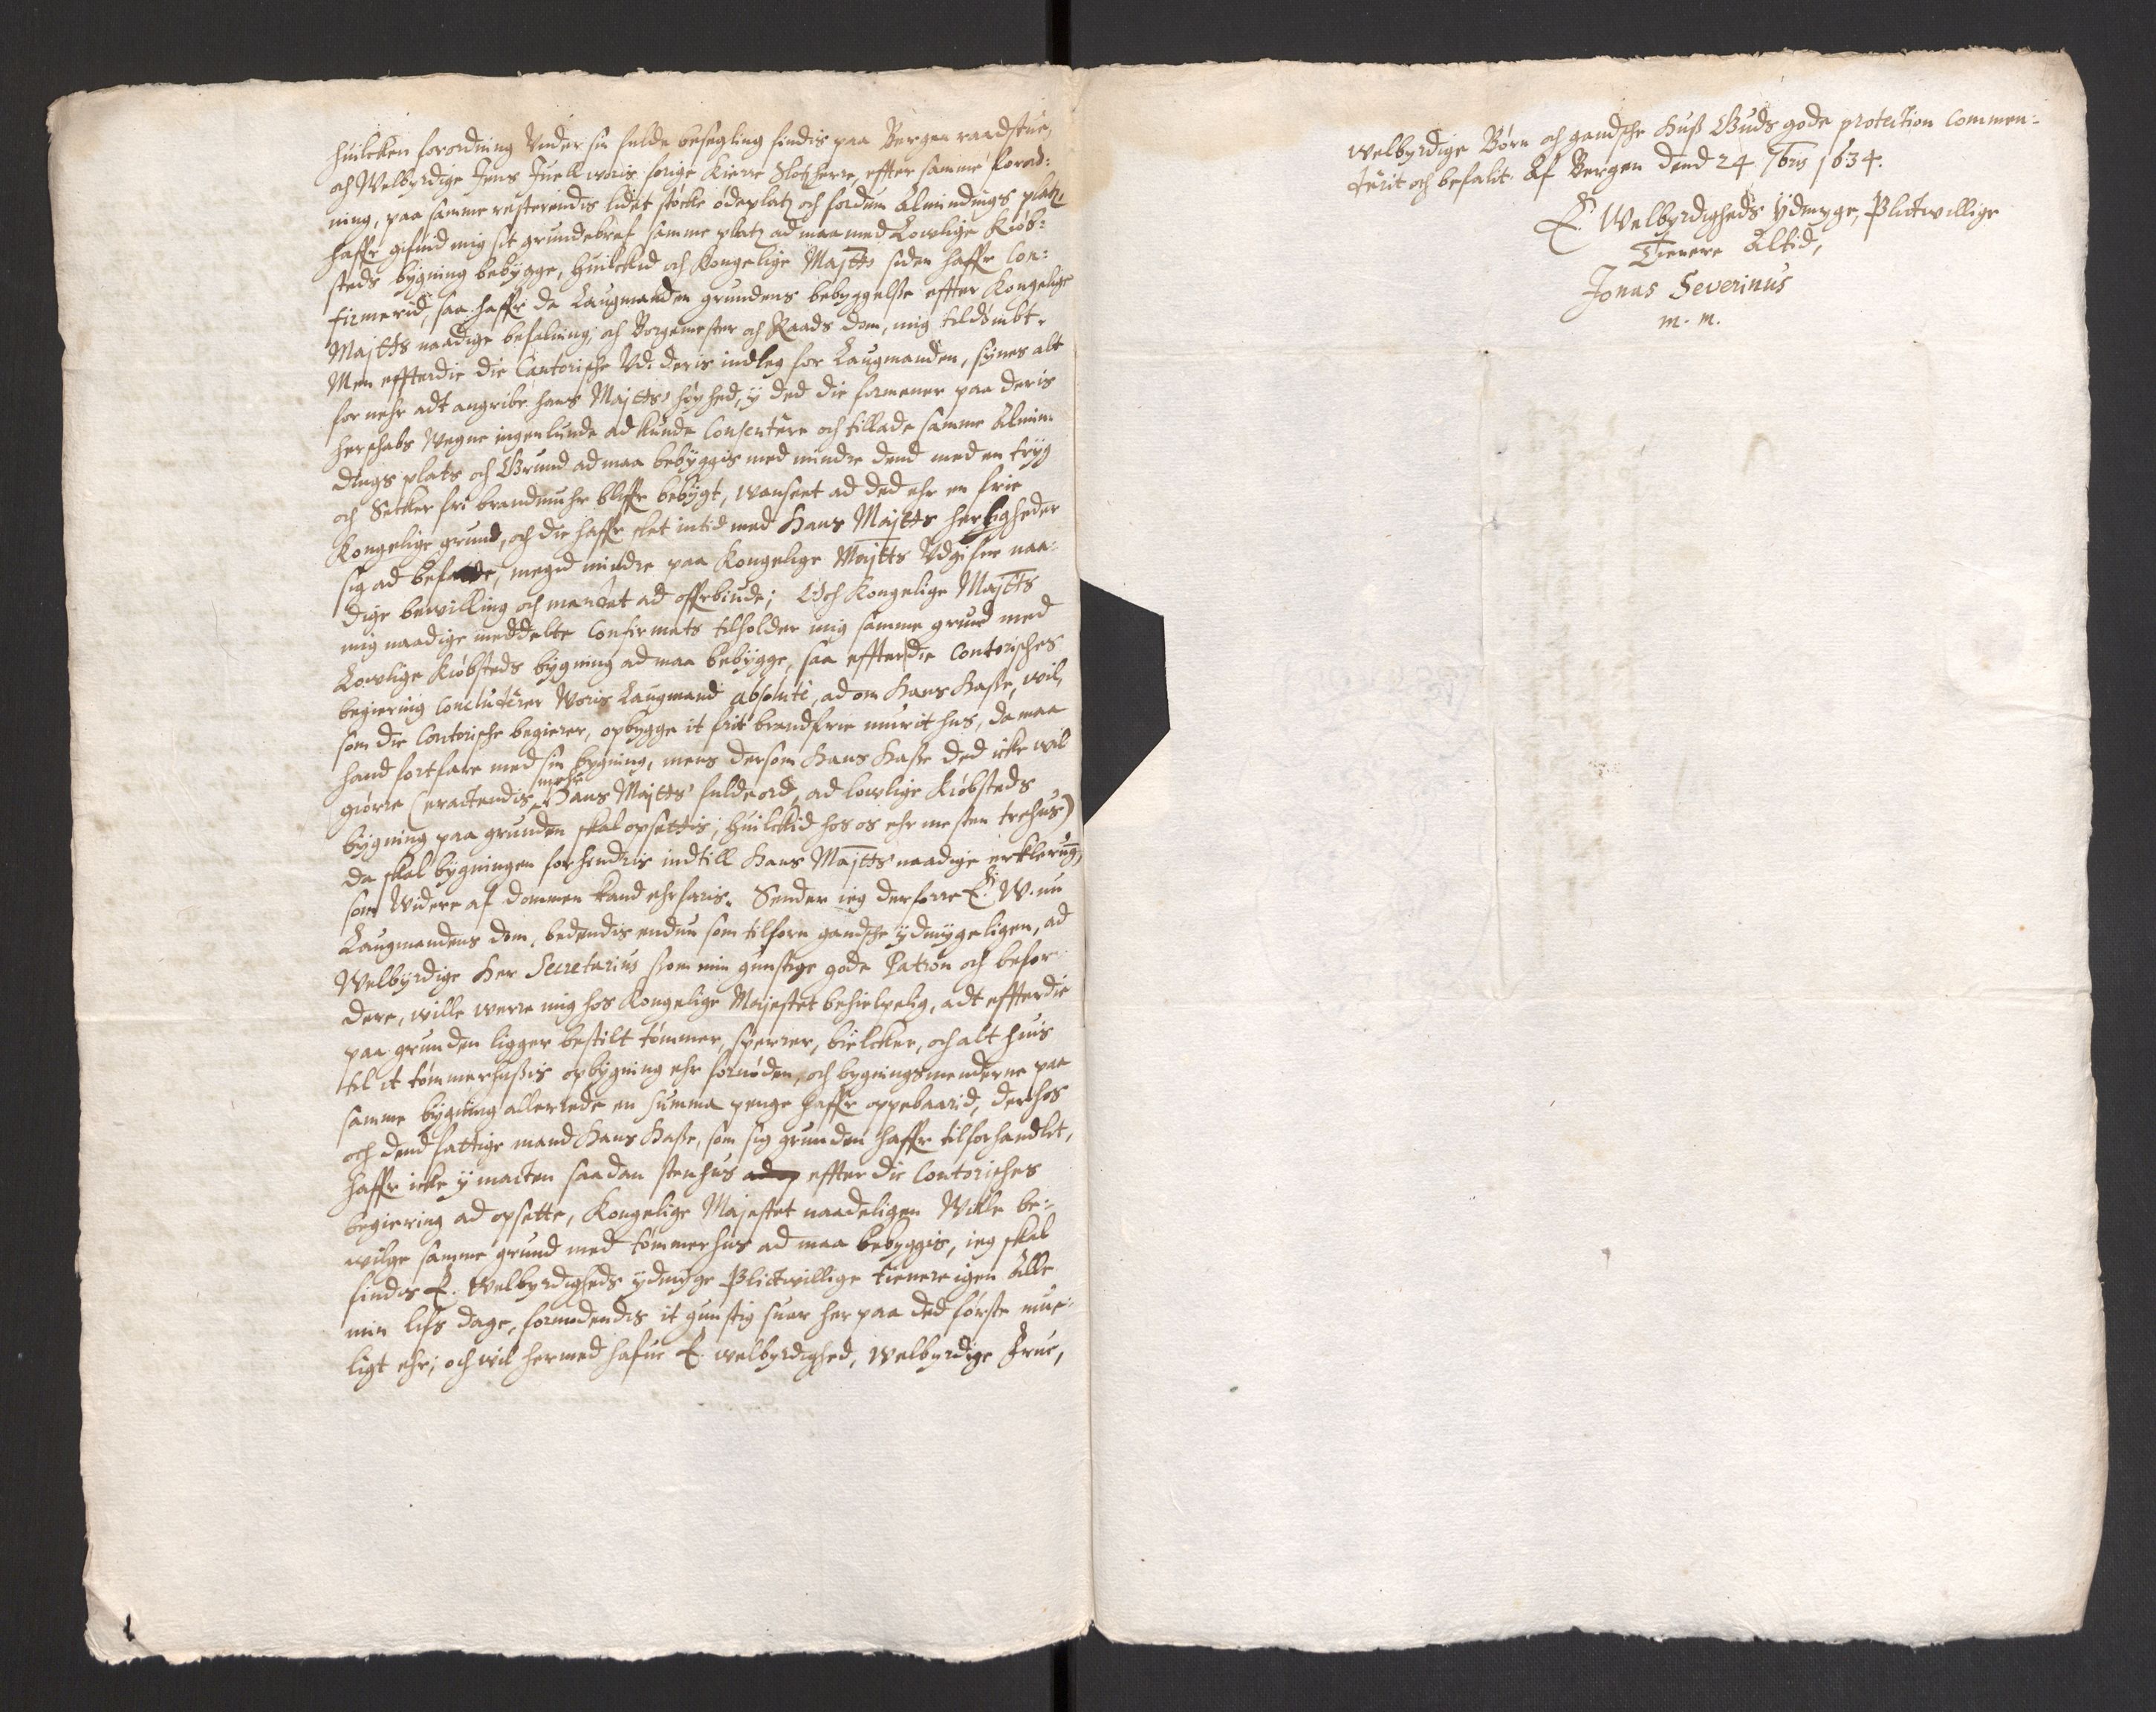 huilcken forordning Under sin fulde besegling findis paa Bergen raadstue,
och Welbyrdige Jens Juell woris forige kiere Slotzherre, effter samme forord:
ning, paa samme resterendis lidet støcke ødeplatz och fordum Almindings platz,
haffr gifvid mig sit grundebref samme platz ad maa med Lowlige Kiøb:
steds bygning bebygge, Huilckid och Kongelige Majtts siden haffr Con:
firmerid, saa haffr da Laugmanden grundens bebyggelsse effter Kongelige
Majtts naadige befalning, och Borgemester och Raads dom, mig tildømbt.
Men effterdie die Cantorische Ud: deris indleg for Laugmanden, synes alt
for nehr adt angribe hans Majtts høyhed, y ded die formener paa deris
herschabs Wegne ingenlunde ad kunde Consentere och tillade samme Almin:
dings plats och Grund ad maa bebyggis med mindre dend med en tryg
och Secker fri brandmuhr bliffr bebygt, wanseet ad ded ehr en frie
Kongelige grund, och die haffr slet intid med Hans Majtts herligheder
sig ad befatte, meged mindre paa Kongelige Majtts Udgifne naa:
dige bewilling och mandat ad offrbiude; Och Kongelige Majtts
mig naadige meddelte Confirmats tilholder mig samme grund med
Lowlige Kiøbsteds bygning ad maa bebygge, saa effterdie Contorisches
begiering Concluderer Woris Laugmand absolute, ad om Hans Hasse, wil,
som die Contorische begierer, opbygge it frit brandfrie murit hus, da maa
hand fortfare med sin bygning, mens dersom Hans Hasse ded icke wil
giøre (eractendis mehr Hans Majtts fulde ord, ad lowlige Kiøbsteds
bygning paa grunden skal opsettis; Huilckid hos os ehr mesten trehus)
da skal bygningen forhindris indtill Hans Majtts naadige erklering,
som Widere af dommen kand ehrfaris. Sender ieg derforre E: W. nu
Laugmandens dom, bedendis endnu som tilforn gandsche ydmygeligen, ad
Welbyrdige Her Secretarius som min gunstige gode Patron och befor
dere, wille werre mig hos Kongelige Majestet behielpelig, adt effterdie
paa grunden ligger bestilt tømmer, sperrer, bielcker, och alt huis
til it tømmerhussis opbygning ehr fornøden, och bygningsmenderne paa
samme bygning allerrede en summa penge haffr oppebaarid, derhos
och dend fattige mand Hans Hasse, som sig grunden haffr tilforhandlet,
haffr icke y macten saadan stenhus effter die Contorisches
begiering ad opsette, Kongelige Majestet naadeligen Wille be:
wilge samme grund med tømmerhus ad maa bebyggis, ieg skal
findis E. Welbyrdigheds ydmyge Plictwillige tienere igen alle
min lifs dage, formodendis it gunstig suar her paa ded første mue:
ligt ehr; och wil hermed hafue E. welbyrdighed, Welbyrdige Frue,
welbyrdige Børn och gandsche Huss Guds gode protection Commen:
derit och befalit. Af Bergen dend 24 7bris 1634.
E. Welbyrdigheds Ydmyge, Plictwillige
Tienere Altid,
Jonas Severinus
m. m.